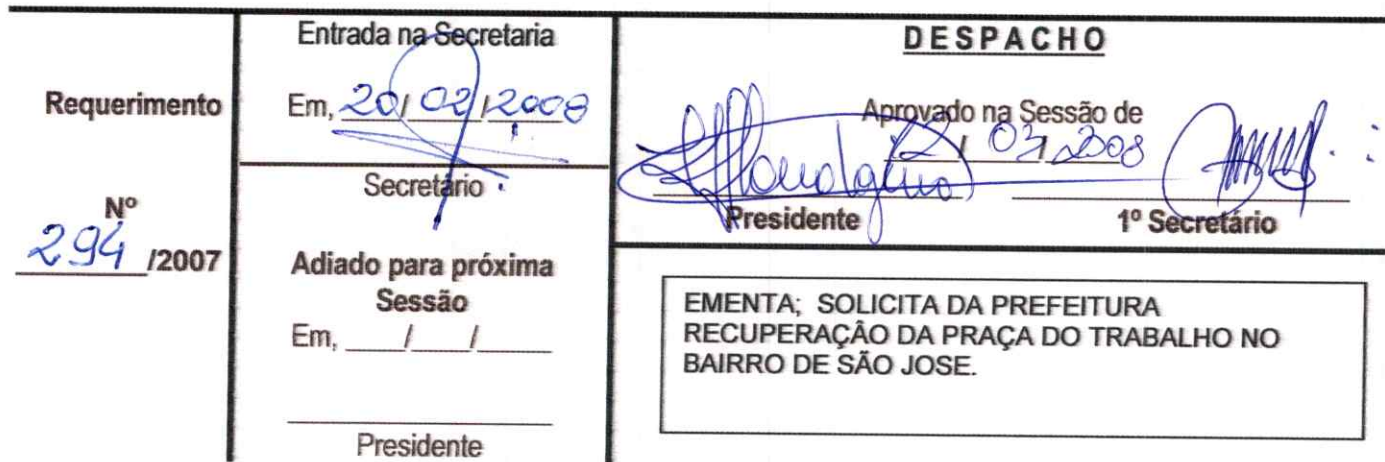 Requerimento
Nº
294 /2007
Entrada na Secretaria
Em, 20/02/2008
Secretário
Adiado para próxima
Sessão
Em, ___/___/___
Presidente
DESPACHO
Aprovado na Sessão de
12/03/2008
Presidente
1º Secretário
EMENTA; SOLICITA DA PREFEITURA
RECUPERAÇÂO DA PRAÇA DO TRABALHO NO
BAIRRO DE SÃO JOSE.